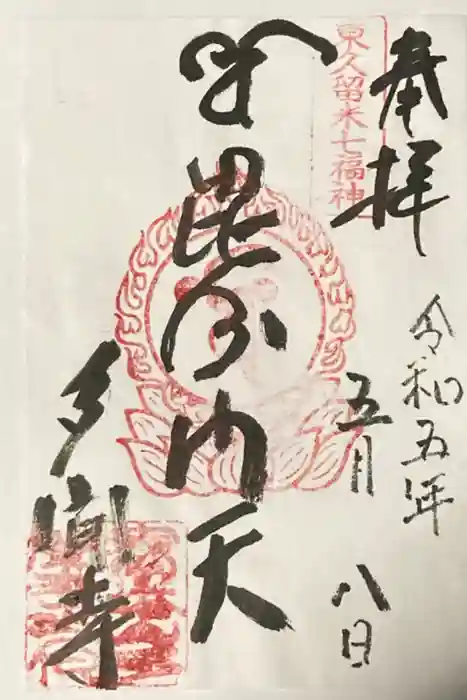 奉拝
東久留米七福神
令和五年
五月八日
毘沙門天
多聞寺